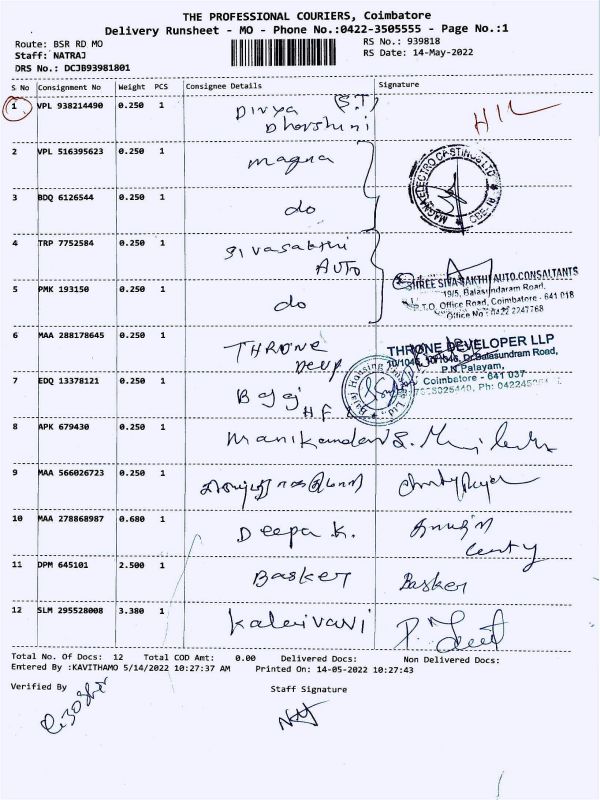 THE PROFESSIONAL COURIERS, Coimbatore
Delivery Runsheet - MO - Phone No.:0422-3505555 - Page No.:1
Route: BSR RD MO
RS No.: 939818
Staff: NATRAJ
RS Date: 14-May-2022
DRS No.: DCJB93981801
S No Consignment No Weight PCS Consignee Details Signature
1 VPL 938214490 0.250 1 Divya (S.T)
Dharshini
2 VPL 516395623 0.250 1 magna
MAGNA ELECTRO CASTINGS LTD
3 BDQ 6126544 0.250 1 do
4 TRP 7752584 0.250 1 Sivasakthi
AUTO
SHREE SIVASAKTHI AUTO CONSALTANTS
5 PMK 193150 0.250 1 do
19/5, Balasundaram Road,
R.T.O. Office Road, Coimbatore - 641 018
Office No: 0422 2247768
6 MAA 288178645 0.250 1 THRONE
Deup
THRONE DEVELOPER LLP
10/1046, Dr.Balasundram Road,
P.N Palayam,
Coimbatore - 641 037
7 EDQ 13378121 0.250 1 Bajaj
HFL
8 APK 679430 0.250 1 manikandan
9 MAA 566026723 0.250 1
10 MAA 278868987 0.680 1 Deepa K.
11 DPM 645101 2.500 1 Basker Basker
12 SLM 295528008 3.380 1 Kalaivani
Total No. Of Docs: 12 Total COD Amt: 0.00 Delivered Docs: Non Delivered Docs:
Entered By :KAVITHAMO 5/14/2022 10:27:37 AM Printed On: 14-05-2022 10:27:43
Verified By Staff Signature